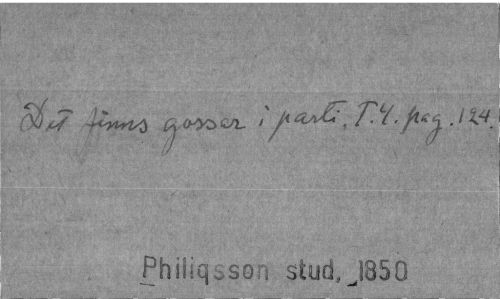 Det finns gossar i parti, T.4. pag. 124.
Philiqsson stud, 1850